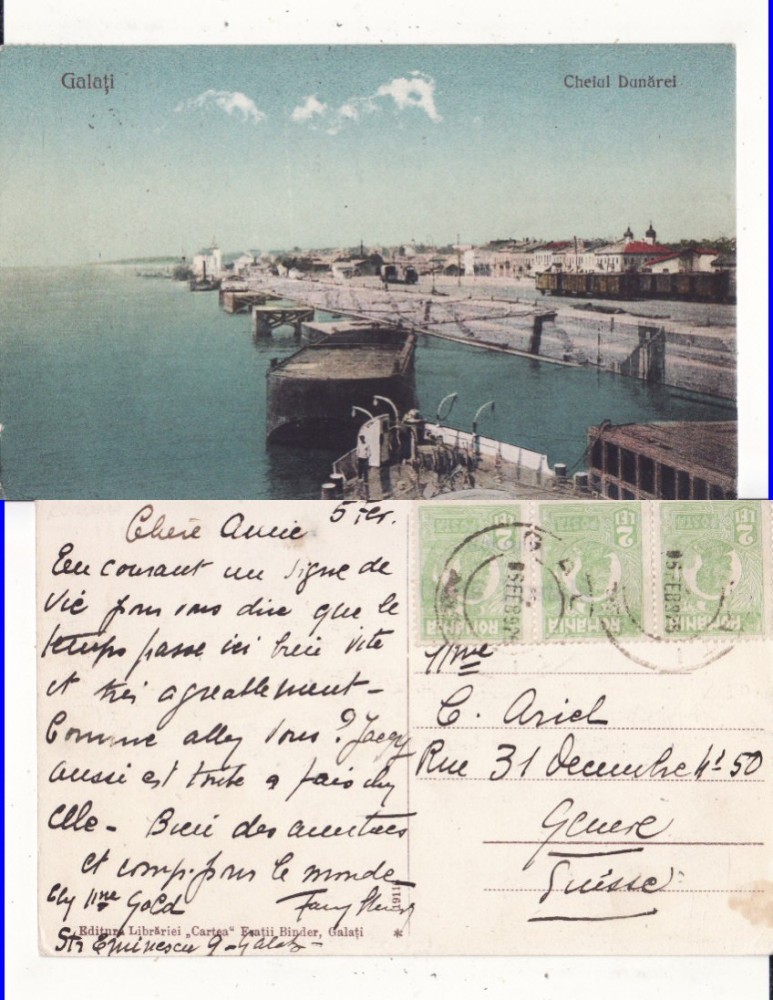 Galați
Cheiul Dunărei
Chère Amie 5 Fev.
En courant un signe de
vie pour vous dire que le
temps passe ici bien vite
et très agréablement -
Comme allez vous ? Jacqy
aussi est toute a fais chy
elle - Bien des amitiés
et comp. pour le monde
Chy Mme Gold
Str Eminescu 9 - Galatz
Editura Librăriei „Cartea" Frații Binder, Galați *
1911
2 LEI POSTA ROMANIA
2 LEI POSTA ROMANIA
2 LEI POSTA ROMANIA
Mme
C. Ariel
Rue 31 Decembre No 50
Genere
Suisse